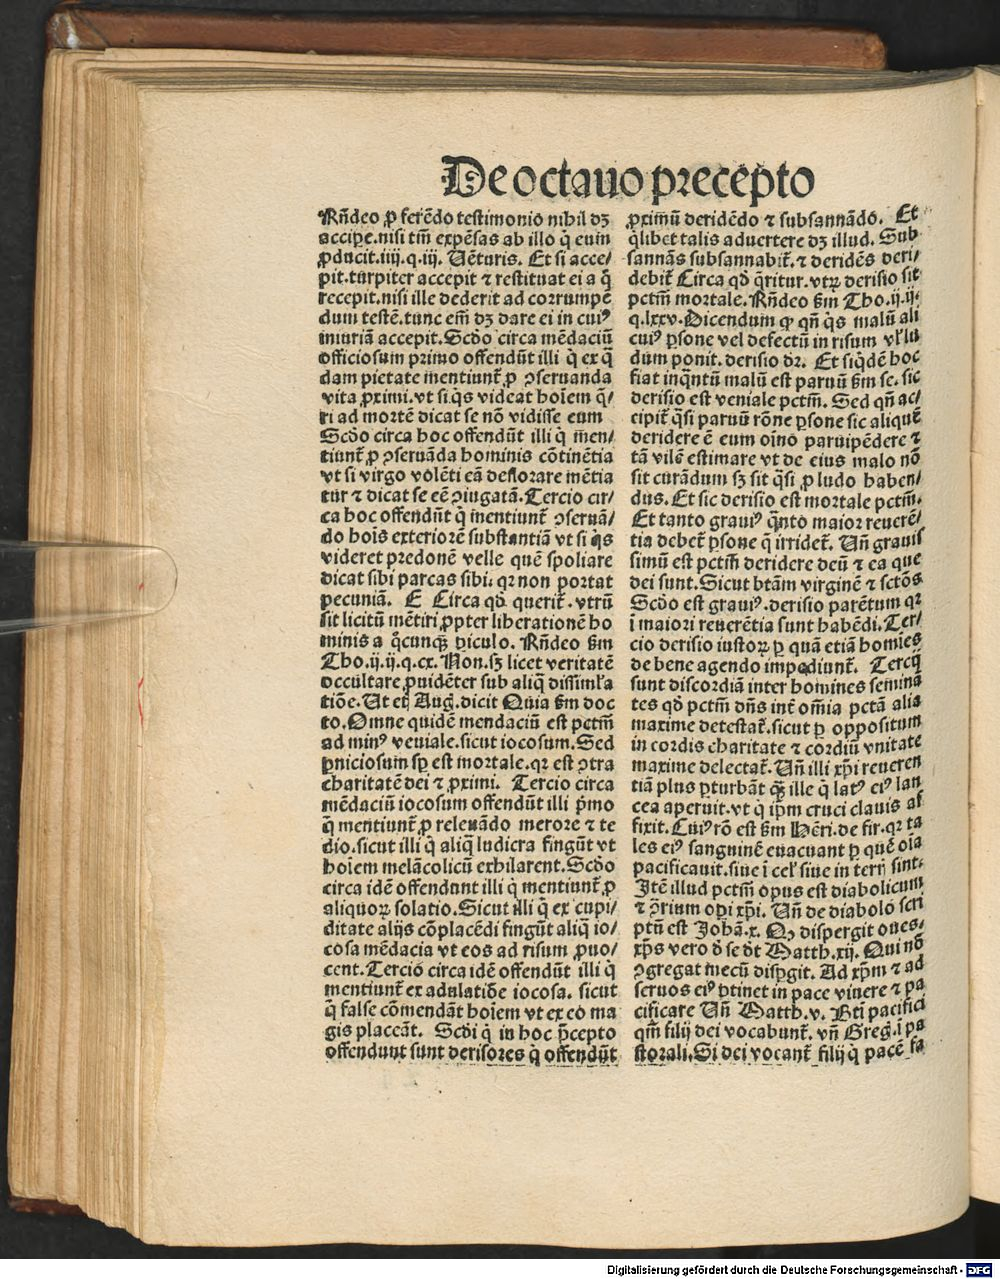 De octauo precepto
Rn̄deo ꝓ ferēdo testimonio nihil dꝫ
accipe.nisi tm̄ expēsas ab illo q̇ eum
ꝓducit.iiij.q.iij. Uēturis. Et si acce/
pit.turpiter accepit ⁊ restituat ei a q̊
recepit.nisi ille dederit ad corrumpē
dum testē.tunc em̄ dꝫ dare ei in cuiꝰ
iniuriā accepit. Scd̄o circa mēdaciū
officiosum primo offendūt illi q̇ ex q̄
dam pietate mentiunt̄ ꝓ ꝯseruanda
vita ꝓximi.vt si.q̇s videat hoīem q̄/
ri ad mortē dicat se nō vidisse eum
Scd̄o circa hoc offendūt illi q̇ men/
tiunt̄ ꝓ ꝯseruāda hominis cōtinētia
vt si virgo volēti eā deflorare mētia
tur ⁊ dicat se eē ꝯiugatā. Tercio cir/
ca hoc offendūt q̇ mentiunt̄ ꝯseruā/
do hoīs exteriorē substantiā vt si q̇s
videret predonē velle quē spoliare
dicat sibi parcas sibi: qꝛ non portat
pecuniā. E Circa qd̄ querit̄.vtrū
sit licitū mētiri ꝓpter liberationē ho
minis a q̊cunqꝫ ꝑiculo. Rn̄deo ẜm
Tho.ij.ij.q.cx. Non.sꝫ licet veritatē
occultare ꝓuidēter sub aliq̄ dissimĺa
tiōe. Ut etiā Aug. dicit Quia ẜm doc
to. Omne quidē mendaciū est pctm̄
ad minꝰ veniale.sicut iocosum. Sed
ꝑniciosum sꝑ est mortale.qꝛ est ꝯtra
charitatē dei ⁊ ꝓximi. Tercio circa
mēdaciū iocosum offendūt illi pͥmo
q̇ mentiunt̄ ꝓ releuādo merore ⁊ te
dio.sicut illi q̇ aliq̄ ludicra fingūt vt
hoīem melācolicū exhilarent. Scd̄o
circa idē offendunt illi q̇ mentiunt̄ ꝓ
aliquoꝝ solatio. Sicut illi q̇ ex cupi/
ditate alijs cōplacēdi fingūt aliq̄ io/
cosa mēdacia vt eos ad risum ꝓuo/
cent. Tercio circa idē offendūt illi q̇
mentiunt̄ ex adulatiōe iocosa. sicut
q̇ false cōmendāt hoīem vt ex eo ma
gis placeāt. Scd̄i q̇ in hoc p̄cepto
offendunt sunt derisores q̇ offendūt
ꝓximū deridēdo ⁊ subsannādo. Et
q̇libet talis aduertere dꝫ illud. Sub
sannās subsannabit̄.⁊ deridēs deri/
debit̄ Circa qd̄ q̄ritur.vtꝝ derisio sit
pctm̄ mortale. Rn̄deo ẜm Tho.ij.ij.
q.lxxv. Dicendum ꝙ qn̄ q̇s malū ali
cuiꝰ ꝑsone vel defectū in risum vĺ lu
dum ponit.derisio dr̄. Et siq̇dē hoc
fiat inq̄ntū malū est paruū ẜm se.sic
derisio est veniale pctm̄. Sed qn̄ ac/
cipit̄ q̄si paruū rōne ꝑsone sic aliquē
deridere ē eum oīno paruipēdere ⁊
tā vilē estimare vt de eius malo nō
sit curādum sꝫ sit q̄si ꝓ ludo haben/
dus. Et sic derisio est mortale pctm̄.
Et tanto grauiꝰ q̄nto maior reuerē/
tia debet̄ ꝑsone q̄ irridet̄. Un̄ grauis
simū est pctm̄ deridere deū ⁊ ea que
dei sunt. Sicut btām virginē ⁊ sctōs
Scd̄o est grauiꝰ.derisio parētum qꝛ
ī maiori reuerētia sunt habēdi. Ter/
cio derisio iustoꝝ ꝑ quā etiā homīes
de bene agendo impediunt̄. Tercij
sunt discordiā inter homines semina
tes qd̄ pctm̄ dn̄s int̄ om̄ia pctā alia
maxime detestat̄.sicut ꝑ oppositum
in cordis charitate ⁊ cordiū vnitate
maxime delectat̄. Un̄ illi xp̄i reueren
tiā plus ꝑturbāt qꝫ ille q̇ latꝰ eiꝰ lan
cea aperuit.vt q̇ ip̄m cruci clauis af
fixit. Cuiꝰ rō est ẜm Hēri.de fir.qꝛ ta
les eiꝰ sanguinē euacuant ꝑ quē oīa
pacificauit.siue ī celꝭ siue in terrꝭ sint.
Itē illud pctm̄ opus est diabolicum
⁊ ꝯ̄rium oꝑi xp̄i. Un̄ de diabolo scri
ptū est Johā.x. Qꝫ dispergit oues.
xp̄s vero d̄ se dt̄ Matth.xij. Qui nō
ꝯgregat mecū disꝑgit. Ad xp̄m ⁊ ad
seruos eiꝰ ꝑtinet in pace viuere ⁊ pa
cificare Un̄ Matth.v. Btī pacifici
qm̄ filij dei vocabunt̄. vn̄ Greg.ī pa
storali. Si dei vocant̄ filij q̇ pacē fa
Digitalisierung gefördert durch die Deutsche Forschungsgemeinschaft - DFG